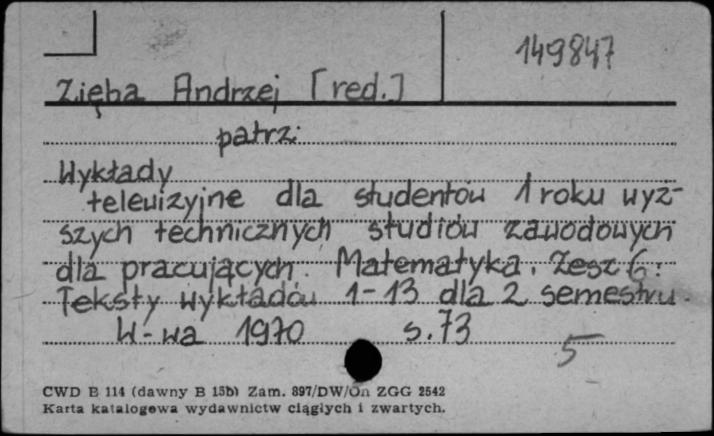 149847
Zięba Andrzej [red.]
patrz:
Wykłady
telewizyjne dla studentów 1 roku wyż-
szych technicznych studiów zawodowych
dla pracujących. Matematyka. Zesz 6:
Teksty wykładów 1-13 dla 2 semestru.
W-wa 1970 s. 73
5
CWD B 114 (dawny B 15b) Zam. 897/DW/On ZGG 2542
Karta katalogowa wydawnictw ciągłych i zwartych.